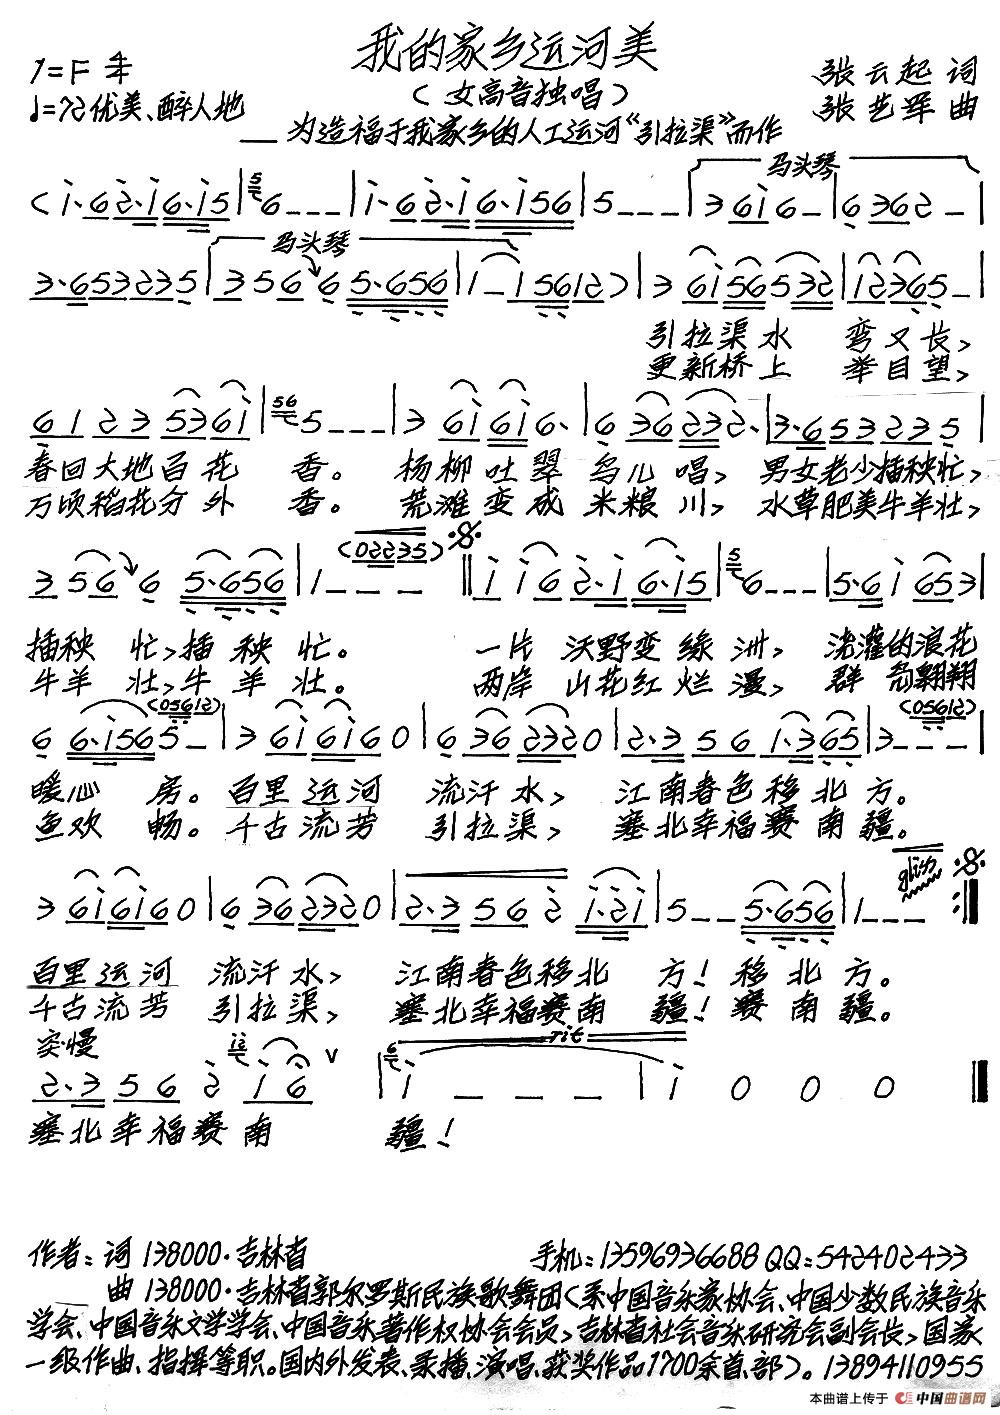 我的家乡运河美
1=F 4/4
张云起 词
(女高音独唱)
♩=72 优美、醉人地
张艺军 曲
——为造福于我家乡的人工运河《引拉渠》而作
马头琴
(i·62·i6·i5|6---|i·62·i6·i56|5---|36i6-|6362-|
马头琴
3·653235|35665·656|1-15612)|36i56532|12365-|
引拉渠水 弯又长,
更新桥上 举目望,
6123536i|5---|36i6i6·|636232·|3·653235|
春回大地百花 香。 杨柳吐翠鸟儿唱, 男女老少插秧忙,
万顷稻花分外 香。 荒滩变成米粮川, 水草肥美牛羊壮,
(02235)
35665·656|1---‖ii62·i6·i5|6---|5·6i653|
插秧 忙,插秧忙。 一片沃野变绿洲, 浇灌的浪花
牛羊 壮,牛羊壮。 两岸山花红烂漫, 群 翱翔
(05612) (05612)
66·i565--|36i6i60|6362320|2·3561·365|3---|
暖心 房。百里运河 流汗水, 江南春色移北方。
鱼欢 畅。千古流芳 引拉渠, 塞北幸福赛南疆。
gliss
36i6i60|6362320|2·3562i·2i|5--5·656|1---:‖
百里运河 流汗水, 江南春色移北 方!移北方。
千古流芳 引拉渠, 塞北幸福赛南 疆!赛南疆。
突慢
rit
2·3562i6 V|i---|i000‖
塞北幸福赛南 疆!
作者:词 138000·吉林省 手机:13596936688 QQ:542402433
曲 138000·吉林省郭尔罗斯民族歌舞团(系中国音乐家协会、中国少数民族音乐
学会、中国音乐文学学会、中国音乐著作权协会会员,吉林省社会音乐研究会副会长,国家
一级作曲、指挥等职。国内外发表、录播、演唱、获奖作品1700余首、部)。13894110955
本曲谱上传于 中国曲谱网